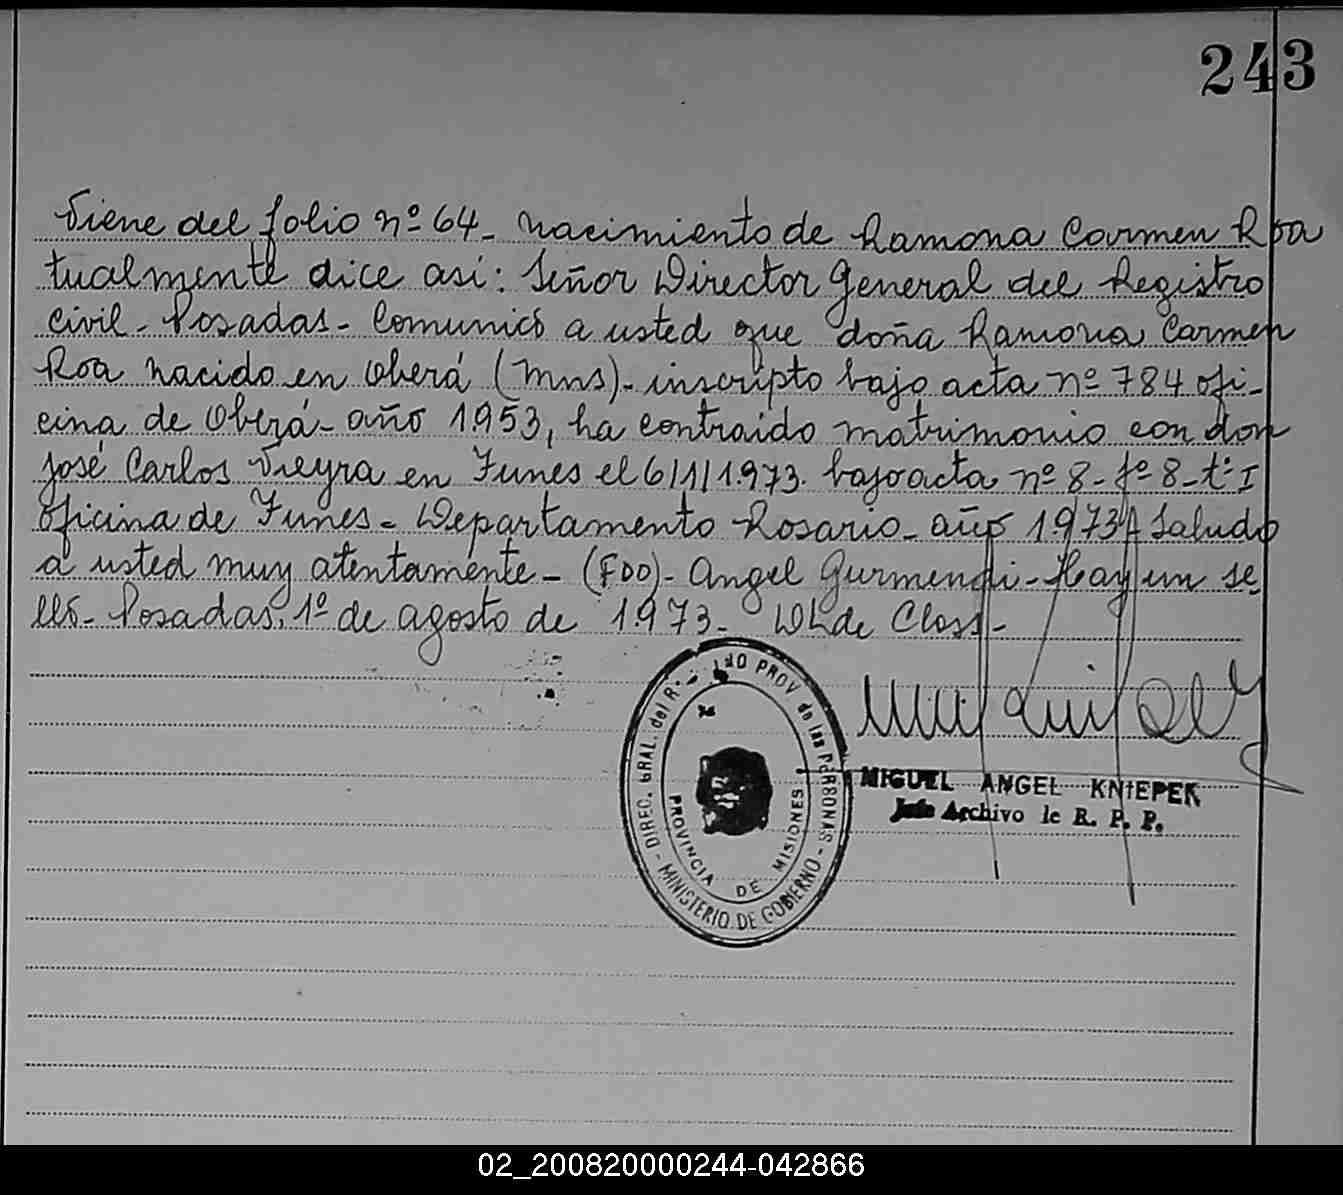 243
Viene del folio nº 64_ nacimiento de Ramona Carmen Roa
tualmente dice así: Señor Director General del Registro
Civil_ Posadas_ Comunico a usted que doña Ramona Carmen
Roa nacido en Oberá (Mns)_ inscripto bajo acta nº 784 ofi_
cina de Oberá_ año 1953, ha contraido matrimonio con don
José Carlos Vieyra en Funes el 6/1/1.973. bajo acta nº 8_ fº 8_ tº I
oficina de Funes_ Departamento Rosario_ año 1973_ Saludo
a usted muy atentamente_ (FDO)_ Angel Gurmendi_ Hay un se_
llo_ Posadas, 1º de agosto de 1.973_ WL de Closs_
DIREC. GRAL. del R. PROV de las PERSONAS - MINISTERIO DE GOBIERNO -
PROVINCIA DE MISIONES
MIGUEL ANGEL KNIEPEK
Jefe Archivo de R. P. P.
02_200820000244-042866